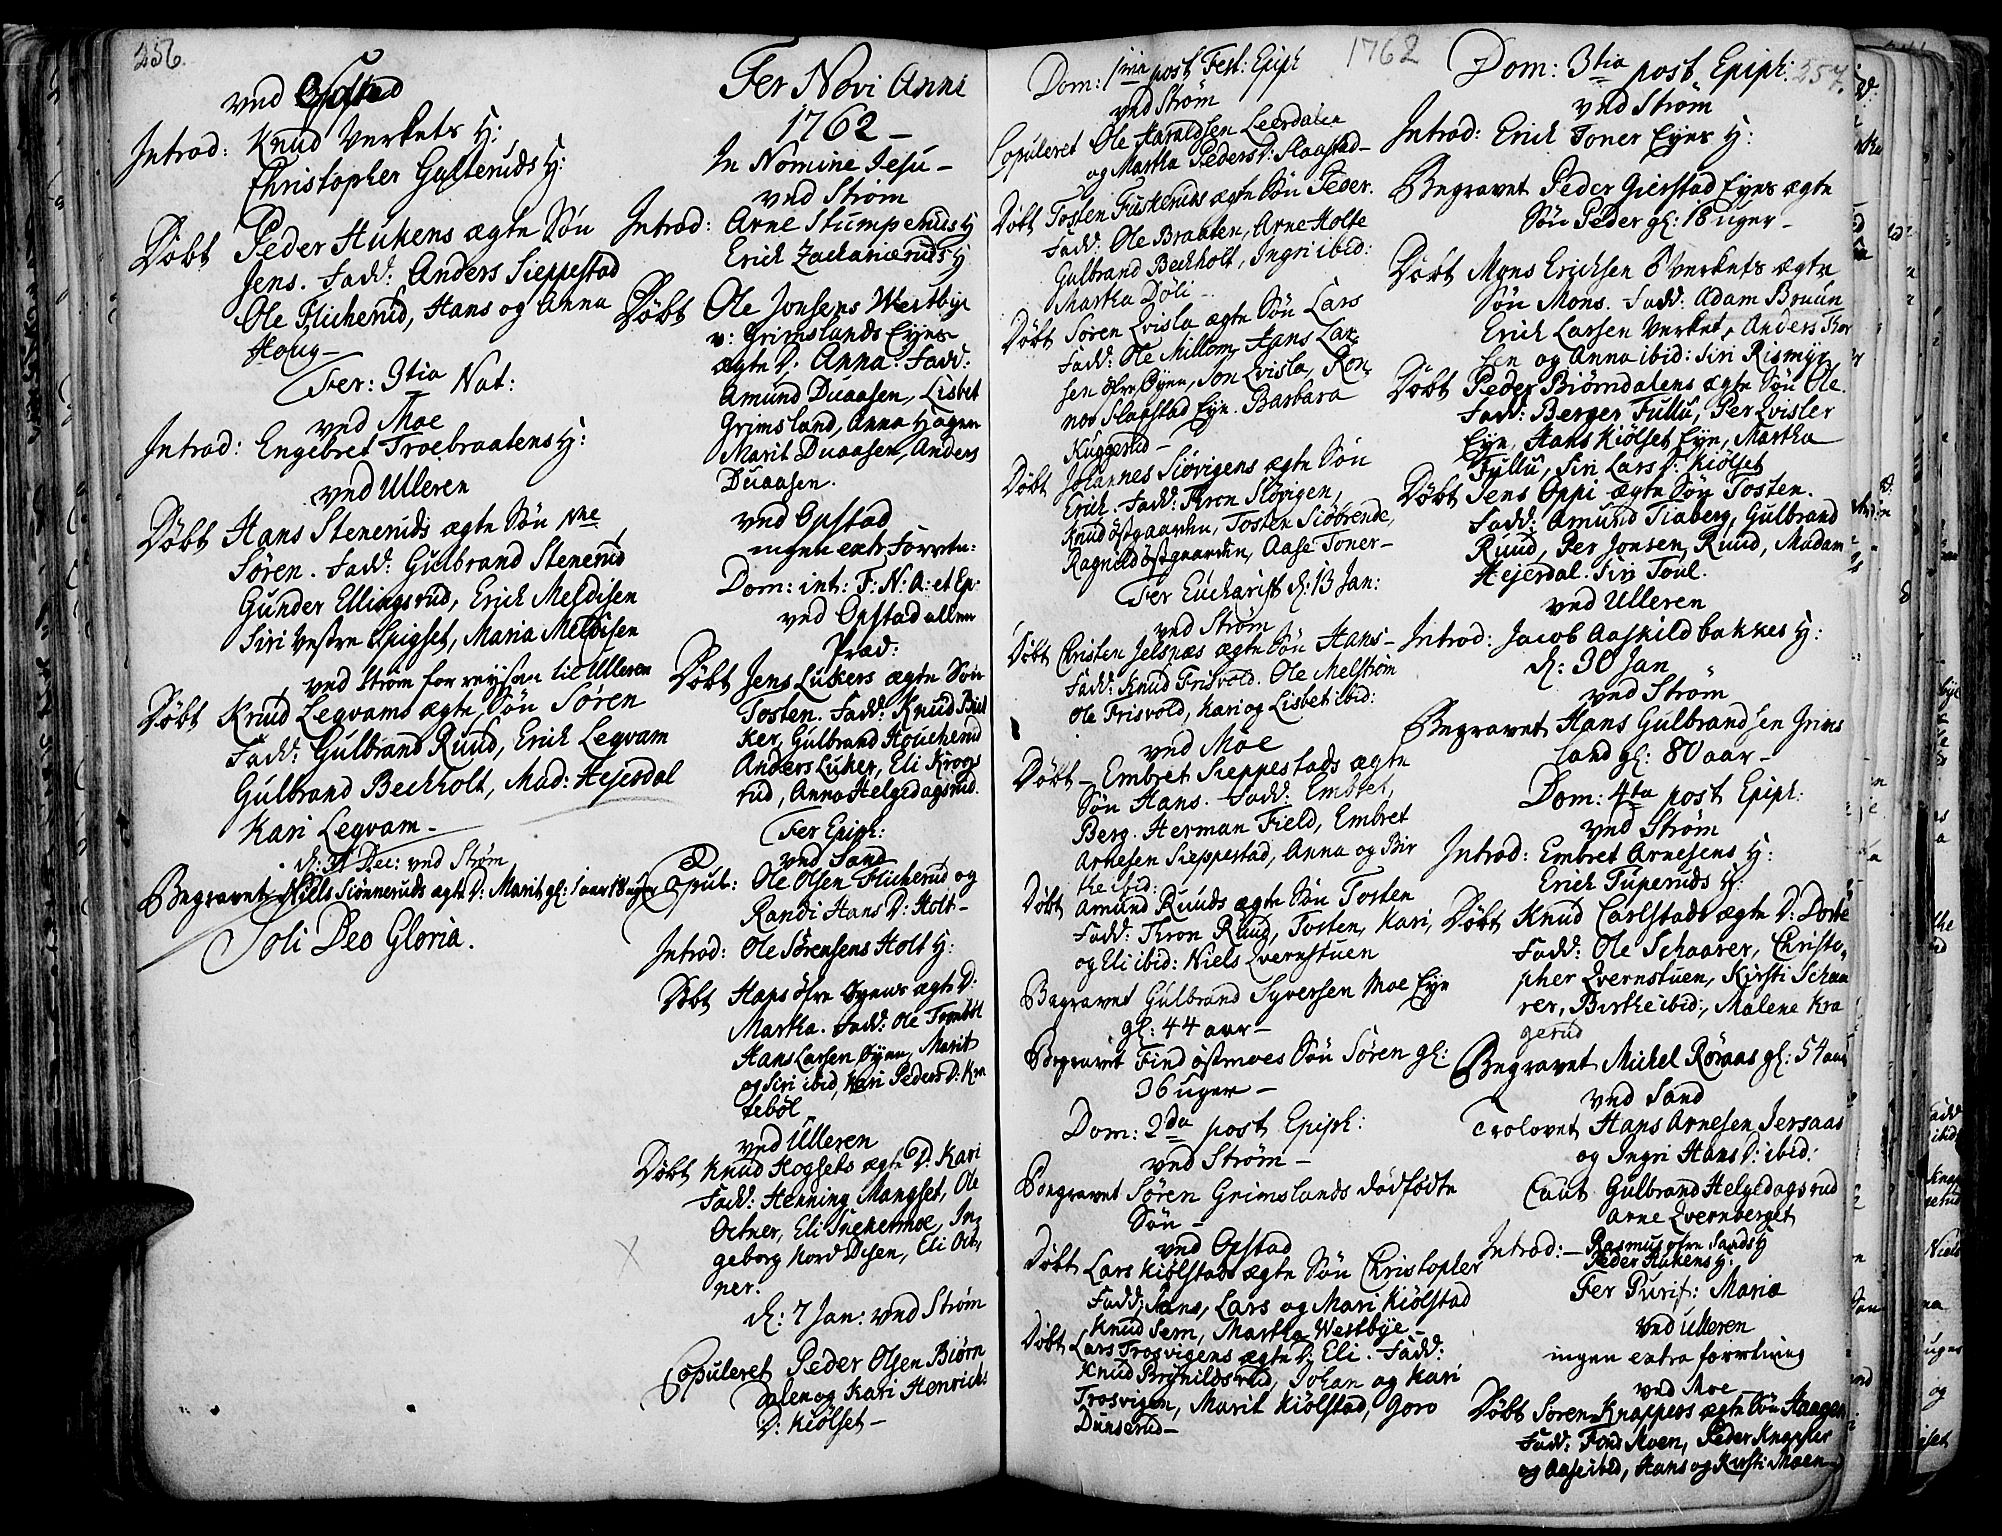 256.
ved Opstad
Introd: Knud Verkets H:
Christopher Galteruds H:
Døbt Peder Hukens ægte Søn
Jens. Fadd: Anders Sieppestad
Ole Flicherud, Hans og Anna
Houg-
Fer: 3tia Nat:
ved Moe
Introd: Engebret Troebraatens H:
ved Ulleren
Døbt Hans Steneruds ægte Søn
Søren. Fadd: Gulbrand Stenerud
Gunder Ellingsrud, Erich Meldisen
Siri Vestre Spigset, Maria Meldisen
ved Strøm for reysen til Ulleren
Døbt Knud Legvams ægte Søn Søren
Fadd: Gulbrand Ruud, Erich Legvam
Gulbrand Bechholt, Mad: Hejerdal
Kari Legvam-
d: 31 Dec: ved Strøm
Begravet Niels Siønneruds ægte D: Marit gl: 1 aar 18 uger
Soli Deo Gloria.
Fer Novi Anni
1762-
In Nomine Jesu-
ved Strøm
Introd: Arne Stumperuds H
Erich Zachariæruds H
Døbt Ole Jonsens Westbye
v: Grimslands Eyes
ægte D: Anna. Fadd:
Amund Duaasen, Lisbet
Grimsland, Anna Hagen
Marit Duaasen, Anders
Duaasen.
ved Opstad
ingen extr. Forretn:
Dom: int: F: N: A: et Ep:
ved Opstad allene
Præd:
Døbt Jens Lukers ægte Søn
Tosten. Fadd: Knud Biel
ker, Gulbrand Houcherud
Anders Luker, Eli Krogs
rud, Anna Helgedagsrud.
Fer Epiph:
ved Sand
Copul: Ole Olsen Flicherud og
Randi Hans D: Holt-
Introd: Ole Sørensens Holt H:
Døbt Hans øfre Øyens ægte D:
Martha. Fadd: Ole Tombol
Hans Larsen Øyen, Marit
og Siri ibid, Kari Peders D: Kra
tebøl
ved Ulleren
Døbt Knud Hogsets ægte D: Kari
Fadd: Henning Mangset, Ole
Octner, Eli Snekermoe, In=
geborg Nord Disen, Eli Oct=
ner.
d: 7 Jan: ved Strøm
Copuleret Peder Olsen Biørn
dalen og Kari Henrichs
D: Kiølset-
1762
Dom: 1ma post Fest: Epiph
ved Strøm
Copuleret Ole Haraldsen Leerdalen
og Martha Peders D: Slaastad-
Døbt Tosten Fuskeruds ægte Søn Peder.
Fadd: Ole Braaten, Arne Holte
Gulbrand Bechholt, Ingri ibid:
Martha Døli-
Døbt Søren Qvisla ægte Søn Lars
Fadd: Ole Millom, Hans Lar=
sen øfre Øyen, Jon Qvisla, Ron=
nov Slaastad Eyn. Barbara
Kuggerud-
Døbt Johannes Siøvigens ægte Søn
Erich. Fadd: Thron Siøvigen,
Knud østgaarden, Tosten Siøbrende,
Ragnild østgaarden, Aase Toner-
Fer Eucharist d: 13 Jan:
ved Strøm
Døbt Christen Jelsnæs ægte Søn Hans-
Fadd: Knud Frisvold. Ole Melstrøm
Ole Frisvold, Kari og Lisbet ibid:
ved Moe
Døbt- Embret Sieppestads ægte
Søn Hans. Fadd: Embret,
Berg. Herman Field, Embret
Arnesen Sieppestad, Anna og Bir
the ibid:
Døbt Amund Ruuds ægte Søn Tosten
Fadd: Thron Ruud, Tosten, Kari,
og Eli ibid: Niels Qvernstuen
Begravet Gulbrand Syversen Moe Eyn
gl: 44 aar-
Begravet Find østmoes Søn Søren gl:
36 uger-
Dom: 2da post Epiph:
ved Strøm-
Begravet Søren Grimslands dødfødte
Søn-
ved Opstad
Døbt Lars Kiølstads ægte Søn Christopher
Fadd: Jens, Lars og Mari Kiølstad
Knud Sem, Martha Westbye-
Døbt Lars Trosvigens ægte D: Eli. Fadd:
Knud Brynildsrud, Johan og Kari
Trosvigen, Marit Kiølstad, Goro
Dunserud-
Dom: 3tia post Epiph: 257.
ved Strøm
Introd: Erich Toner Eyes H:
Begravet Peder Gierstad Eyes ægte
Søn Peder gl: 18 uger-
Døbt Mons Erichsen Verkets ægte
Søn Mons. Fadd: Adam Bruun
Erich Larsen Verket, Anders Thor
sen og Anna ibid: Siri Rismyr
Døbt Peder Biørndalens ægte Søn Ole
Fadd: Berger Fullu, Per Qvisler
Eyn, Hans Kiølset Eyn, Martha
Fullu, Siri Lars D: Kiølset
Døbt Jens Oppi ægte Søn Tosten.
Fadd: Amund Tiaberg, Gulbrand
Ruud, Per Jonsen Ruud, Madam
Hejerdal. Siri Toul.
ved Ulleren
Introd: Jacob Aaskildbakkes H:
d: 30 Jan
ved Strøm
Begravet Hans Gulbrandsen Grims
land gl: 80 aar-
Dom: 4ta post Epiph:
ved Strøm
Introd: Embret Arnesens H:
Erich Tuperuds H:
Døbt Knud Carlstads ægte D: Dorthe
Fadd: Ole Schaarer, Christo=
pher Qvernstuen, Kirsti Schaa
rer, Birthe ibid:, Malene Kra
gerud
Begravet Michel Røraas gl: 54 aar
ved Sand
Trolovet Hans Arnesen Jersaas
og Ingri Hans D: ibid:
Caut. Gulbrand Helgedagsrud
Arne Qvernberget
Introd:- Rasmus øfre Sands H
Peder Hukens H:
Fer Purif: Mariæ
ved Ulleren
ingen extra forretning
ved Moe
Døbt Søren Knappers ægte Søn Haagen
Fadd: Find Moen, Peder Knapper
og Aase ibid, Hans og Kirsti Moen